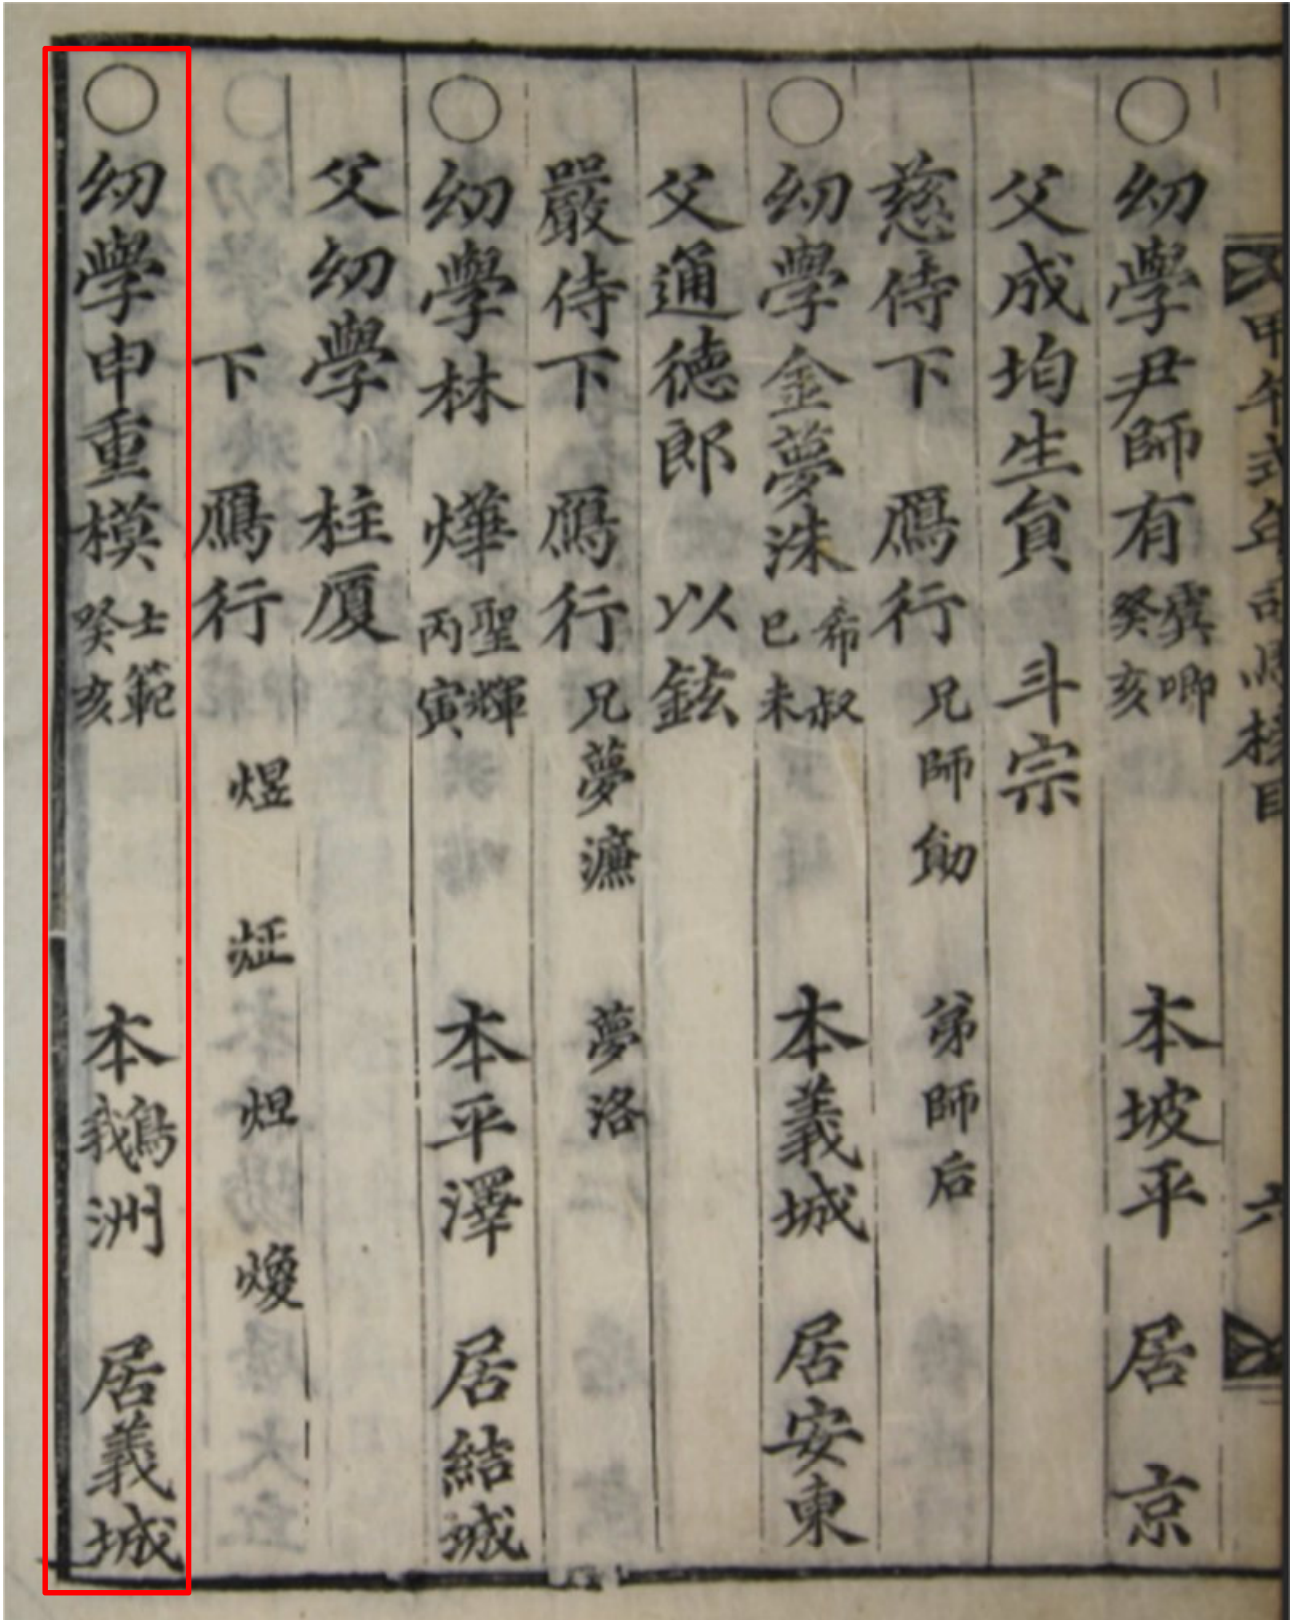 甲午式年司馬榜目 六
○幼學尹師有 癸亥 本坡平 居京
父成均生員 斗宗
慈侍下 鴈行 兄師勛 弟師后
○幼學金夢洙 希叔 己未 本義城 居安東
父通德郎 以鉉
嚴侍下 鴈行 兄夢濂 夢洛
○幼學林燁 聖輝 丙寅 本平澤 居結城
父幼學 柱厦
下 鴈行 煜 炡 炟 煥
○幼學申重模 士範 癸亥 本鵝洲 居義城